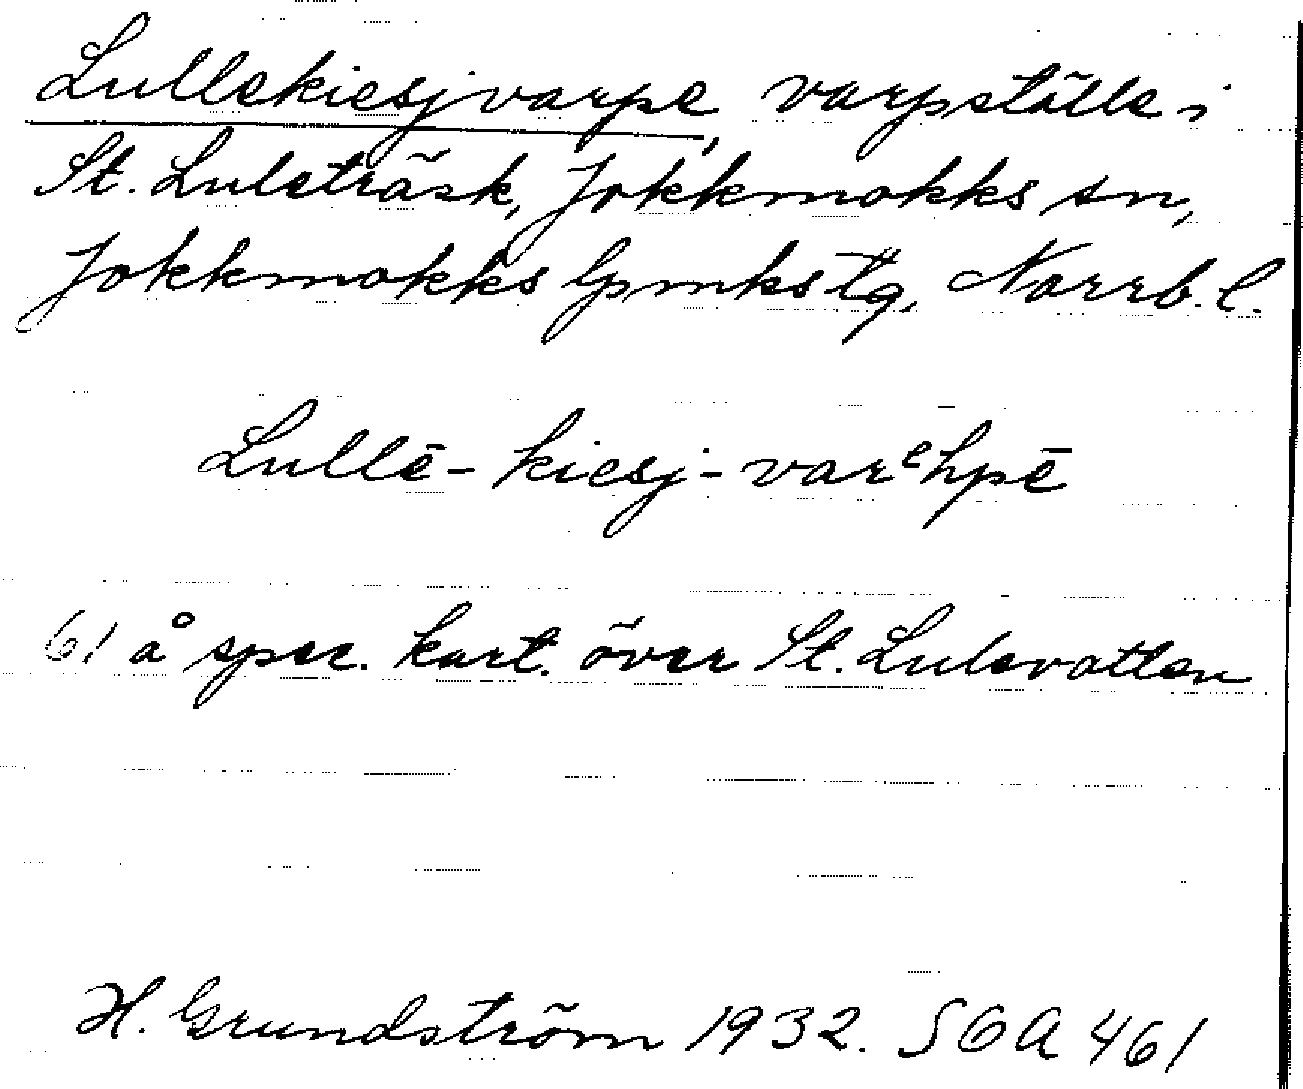 Lullekiesjvarpe, varpställe i
St. Luleträsk, Jokkmokks sn,
Jokkmokks lpmks tg, Norrb. l.
Lullē-kiesj-varᵉhpē
61 å spec. kart. över St. Lulevatten
H. Grundström 1932. SOA 461